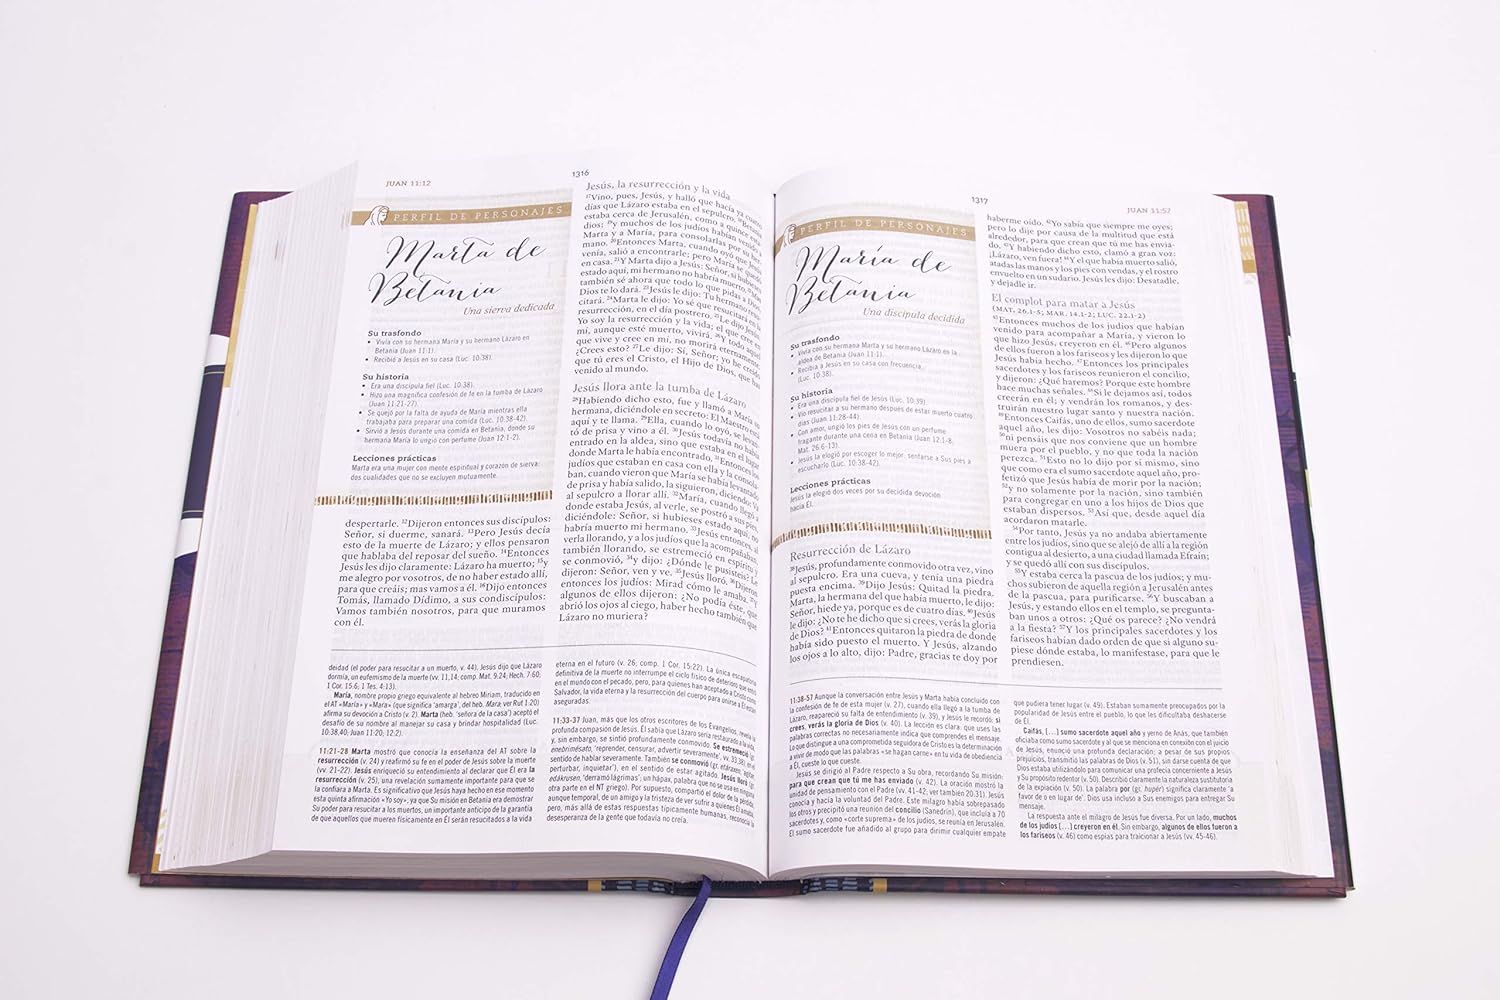 JUAN 11:12
1316
PERFIL DE PERSONAJES
Marta de
Betania
Una sierva dedicada
Su trasfondo
• Vivía con su hermana María y su hermano Lázaro en
Betania (Juan 11:1).
• Recibió a Jesús en su casa (Luc. 10:38).
Su historia
• Era una discípula fiel (Luc. 10:38).
• Hizo una magnífica confesión de fe en la tumba de Lázaro
(Juan 11:21-27).
• Se quejó por la falta de ayuda de María mientras ella
trabajaba para preparar una comida (Luc. 10:38-42).
• Sirvió a Jesús durante una comida en Betania, donde su
hermana María lo ungió con perfume (Juan 12:1-2).
Lecciones prácticas
Marta era una mujer con mente espiritual y corazón de sierva:
dos cualidades que no se excluyen mutuamente.
despertarle. 12Dijeron entonces sus discípulos:
Señor, si duerme, sanará. 13Pero Jesús decía
esto de la muerte de Lázaro; y ellos pensaron
que hablaba del reposar del sueño. 14Entonces
Jesús les dijo claramente: Lázaro ha muerto; 15y
me alegro por vosotros, de no haber estado allí,
para que creáis; mas vamos a él. 16Dijo entonces
Tomás, llamado Dídimo, a sus condiscípulos:
Vamos también nosotros, para que muramos
con él.
Jesús, la resurrección y la vida
17Vino, pues, Jesús, y halló que hacía ya cuatro
días que Lázaro estaba en el sepulcro. 18Betania
estaba cerca de Jerusalén, como a quince esta-
dios; 19y muchos de los judíos habían venido a
Marta y a María, para consolarlas por su her-
mano. 20Entonces Marta, cuando oyó que Jesús
venía, salió a encontrarle; pero María se quedó
en casa. 21Y Marta dijo a Jesús: Señor, si hubieses
estado aquí, mi hermano no habría muerto. 22Mas
también sé ahora que todo lo que pidas a Dios,
Dios te lo dará. 23Jesús le dijo: Tu hermano resu-
citará. 24Marta le dijo: Yo sé que resucitará en la
resurrección, en el día postrero. 25Le dijo Jesús:
Yo soy la resurrección y la vida; el que cree en
mí, aunque esté muerto, vivirá. 26Y todo aquel
que vive y cree en mí, no morirá eternamente.
¿Crees esto? 27Le dijo: Sí, Señor; yo he creído
que tú eres el Cristo, el Hijo de Dios, que has
venido al mundo.
Jesús llora ante la tumba de Lázaro
28Habiendo dicho esto, fue y llamó a María su
hermana, diciéndole en secreto: El Maestro está
aquí y te llama. 29Ella, cuando lo oyó, se levan-
tó de prisa y vino a él. 30Jesús todavía no había
entrado en la aldea, sino que estaba en el lugar
donde Marta le había encontrado. 31Entonces los
judíos que estaban en casa con ella y la consola-
ban, cuando vieron que María se había levantado
de prisa y había salido, la siguieron, diciendo: Va
al sepulcro a llorar allí. 32María, cuando llegó a
donde estaba Jesús, al verle, se postró a sus pies,
diciéndole: Señor, si hubieses estado aquí, no
habría muerto mi hermano. 33Jesús entonces, al
verla llorando, y a los judíos que la acompañaban,
también llorando, se estremeció en espíritu y
se conmovió, 34y dijo: ¿Dónde le pusisteis? Le
dijeron: Señor, ven y ve. 35Jesús lloró. 36Dijeron
entonces los judíos: Mirad cómo le amaba. 37Y
algunos de ellos dijeron: ¿No podía éste, que
abrió los ojos al ciego, haber hecho también que
Lázaro no muriera?
deidad (el poder para resucitar a un muerto, v. 44). Jesús dijo que Lázaro
dormía, un eufemismo de la muerte (vv. 11,14; comp. Mat. 9:24; Hech. 7:60;
1 Cor. 15:6; 1 Tes. 4:13).
María, nombre propio griego equivalente al hebreo Miriam, traducido en
el AT «María» y «Mara» (que significa 'amarga', del heb. Mara; ver Rut 1:20)
afirma su devoción a Cristo (v. 2). Marta (heb. 'señora de la casa') aceptó el
desafío de su nombre al manejar su casa y brindar hospitalidad (Luc.
10:38,40; Juan 11:20; 12:2).
11:21-28 Marta mostró que conocía la enseñanza del AT sobre la
resurrección (v. 24) y reafirmó su fe en el poder de Jesús sobre la muerte
(vv. 21-22). Jesús enriqueció su entendimiento al declarar que Él era la
resurrección (v. 25), una revelación sumamente importante para que se
la confiara a Marta. Es significativo que Jesús haya hecho en ese momento
esta quinta afirmación «Yo soy», ya que Su Misión en Betania era demostrar
Su poder para resucitar a los muertos, un importante anticipo de la garantía
de que aquellos que mueren físicamente en Él serán resucitados a la vida
eterna en el futuro (v. 26; comp. 1 Cor. 15:22). La única escapatoria
definitiva de la muerte no interrumpe el ciclo físico de deterioro que entró
en el mundo con el pecado, pero, para quienes han aceptado a Cristo como
Salvador, la vida eterna y la resurrección del cuerpo para unirse a Él están
aseguradas.
11:33-37 Juan, más que los otros escritores de los Evangelios, revela la
profunda compasión de Jesús. Él sabía que Lázaro sería restaurado a la vida,
y, sin embargo, se sintió profundamente conmovido. Se estremeció (gr.
enebrimésato, 'reprender, censurar, advertir severamente', vv. 33,38), en el
sentido de hablar severamente. También se conmovió (gr. etáraxen, 'agitar,
perturbar, inquietar'), en el sentido de estar agitado. Jesús lloró (gr.
edákrusen, 'derramó lágrimas'; un hápax, palabra que no se usa en ninguna
otra parte en el NT griego). Por supuesto, compartió el dolor de la pérdida,
aunque temporal, de un amigo y la tristeza de ver sufrir a quienes Él amaba,
pero, más allá de estas respuestas típicamente humanas, reconocía la
desesperanza de la gente que todavía no creía.
1317
JUAN 11:57
PERFIL DE PERSONAJES
María de
Betania
Una discípula decidida
Su trasfondo
• Vivía con su hermana Marta y su hermano Lázaro en la
aldea de Betania (Juan 11:1).
• Recibía a Jesús en su casa con frecuencia
(Luc. 10:38).
Su historia
• Era una discípula fiel de Jesús (Luc. 10:39).
• Vio resucitar a su hermano después de estar muerto cuatro
días (Juan 11:28-44).
• Con amor, ungió los pies de Jesús con un perfume
fragante durante una cena en Betania (Juan 12:1-8;
Mat. 26:6-13).
• Jesús la elogió por escoger lo mejor: sentarse a Sus pies a
escucharlo (Luc. 10:38-42).
Lecciones prácticas
Jesús la elogió dos veces por su decidida devoción
hacia Él.
Resurrección de Lázaro
38Jesús, profundamente conmovido otra vez, vino
al sepulcro. Era una cueva, y tenía una piedra
puesta encima. 39Dijo Jesús: Quitad la piedra.
Marta, la hermana del que había muerto, le dijo:
Señor, hiede ya, porque es de cuatro días. 40Jesús
le dijo: ¿No te he dicho que si crees, verás la gloria
de Dios? 41Entonces quitaron la piedra de donde
había sido puesto el muerto. Y Jesús, alzando
los ojos a lo alto, dijo: Padre, gracias te doy por
haberme oído. 42Yo sabía que siempre me oyes;
pero lo dije por causa de la multitud que está
alrededor, para que crean que tú me has envia-
do. 43Y habiendo dicho esto, clamó a gran voz:
¡Lázaro, ven fuera! 44Y el que había muerto salió,
atadas las manos y los pies con vendas, y el rostro
envuelto en un sudario. Jesús les dijo: Desatadle,
y dejadle ir.
El complot para matar a Jesús
(MAT. 26.1-5; MAR. 14.1-2; LUC. 22.1-2)
45Entonces muchos de los judíos que habían
venido para acompañar a María, y vieron lo
que hizo Jesús, creyeron en él. 46Pero algunos
de ellos fueron a los fariseos y les dijeron lo que
Jesús había hecho. 47Entonces los principales
sacerdotes y los fariseos reunieron el concilio,
y dijeron: ¿Qué haremos? Porque este hombre
hace muchas señales. 48Si le dejamos así, todos
creerán en él; y vendrán los romanos, y des-
truirán nuestro lugar santo y nuestra nación.
49Entonces Caifás, uno de ellos, sumo sacerdote
aquel año, les dijo: Vosotros no sabéis nada;
50ni pensáis que nos conviene que un hombre
muera por el pueblo, y no que toda la nación
perezca. 51Esto no lo dijo por sí mismo, sino
que como era el sumo sacerdote aquel año, pro-
fetizó que Jesús había de morir por la nación;
52y no solamente por la nación, sino también
para congregar en uno a los hijos de Dios que
estaban dispersos. 53Así que, desde aquel día
acordaron matarle.
54Por tanto, Jesús ya no andaba abiertamente
entre los judíos, sino que se alejó de allí a la región
contigua al desierto, a una ciudad llamada Efraín;
y se quedó allí con sus discípulos.
55Y estaba cerca la pascua de los judíos; y mu-
chos subieron de aquella región a Jerusalén antes
de la pascua, para purificarse. 56Y buscaban a
Jesús, y estando ellos en el templo, se pregunta-
ban unos a otros: ¿Qué os parece? ¿No vendrá
a la fiesta? 57Y los principales sacerdotes y los
fariseos habían dado orden de que si alguno su-
piese dónde estaba, lo manifestase, para que le
prendiesen.
11:38-57 Aunque la conversación entre Jesús y Marta había concluido con
la confesión de fe de esta mujer (v. 27), cuando ella llegó a la tumba de
Lázaro, reapareció su falta de entendimiento (v. 39), y Jesús le recordó: si
crees, verás la gloria de Dios (v. 40). La lección es clara: que uses las
palabras correctas no necesariamente indica que comprendes el mensaje.
Lo que distingue a una comprometida seguidora de Cristo es la determinación
a vivir de modo que las palabras «se hagan carne» en tu vida de obediencia
a Él, cueste lo que cueste.
Jesús se dirigió al Padre respecto a Su obra, recordando Su misión:
para que crean que tú me has enviado (v. 42). La oración mostró la
unidad de pensamiento con el Padre (vv. 41-42; ver también 20:31). Jesús
conocía y hacía la voluntad del Padre. Este milagro había sobrepasado
los otros y precipitó una reunión del concilio (Sanedrín), que incluía a 70
sacerdotes y, como «corte suprema» de los judíos, se reunía en Jerusalén.
El sumo sacerdote fue añadido al grupo para dirimir cualquier empate
que pudiera tener lugar (v. 49). Estaban sumamente preocupados por la
popularidad de Jesús entre el pueblo, lo que les dificultaba deshacerse
de Él.
Caifás, [...] sumo sacerdote aquel año y yerno de Anás, que también
oficiaba como sumo sacerdote y al que se menciona en conexión con el juicio
de Jesús, enunció una profunda declaración; a pesar de sus propios
prejuicios, transmitió las palabras de Dios (v. 51), sin darse cuenta de que
Dios estaba utilizándolo para comunicar una profecía concerniente a Jesús
y Su propósito redentor (v. 50). Describió claramente la naturaleza sustitutoria
de la expiación (v. 50). La palabra por (gr. hupér) significa claramente 'a
favor de o en lugar de'. Dios usa incluso a Sus enemigos para entregar Su
mensaje.
La respuesta ante el milagro de Jesús fue diversa. Por un lado, muchos
de los judíos [...] creyeron en él. Sin embargo, algunos de ellos fueron a
los fariseos (v. 46) como espías para traicionar a Jesús (vv. 45-46).